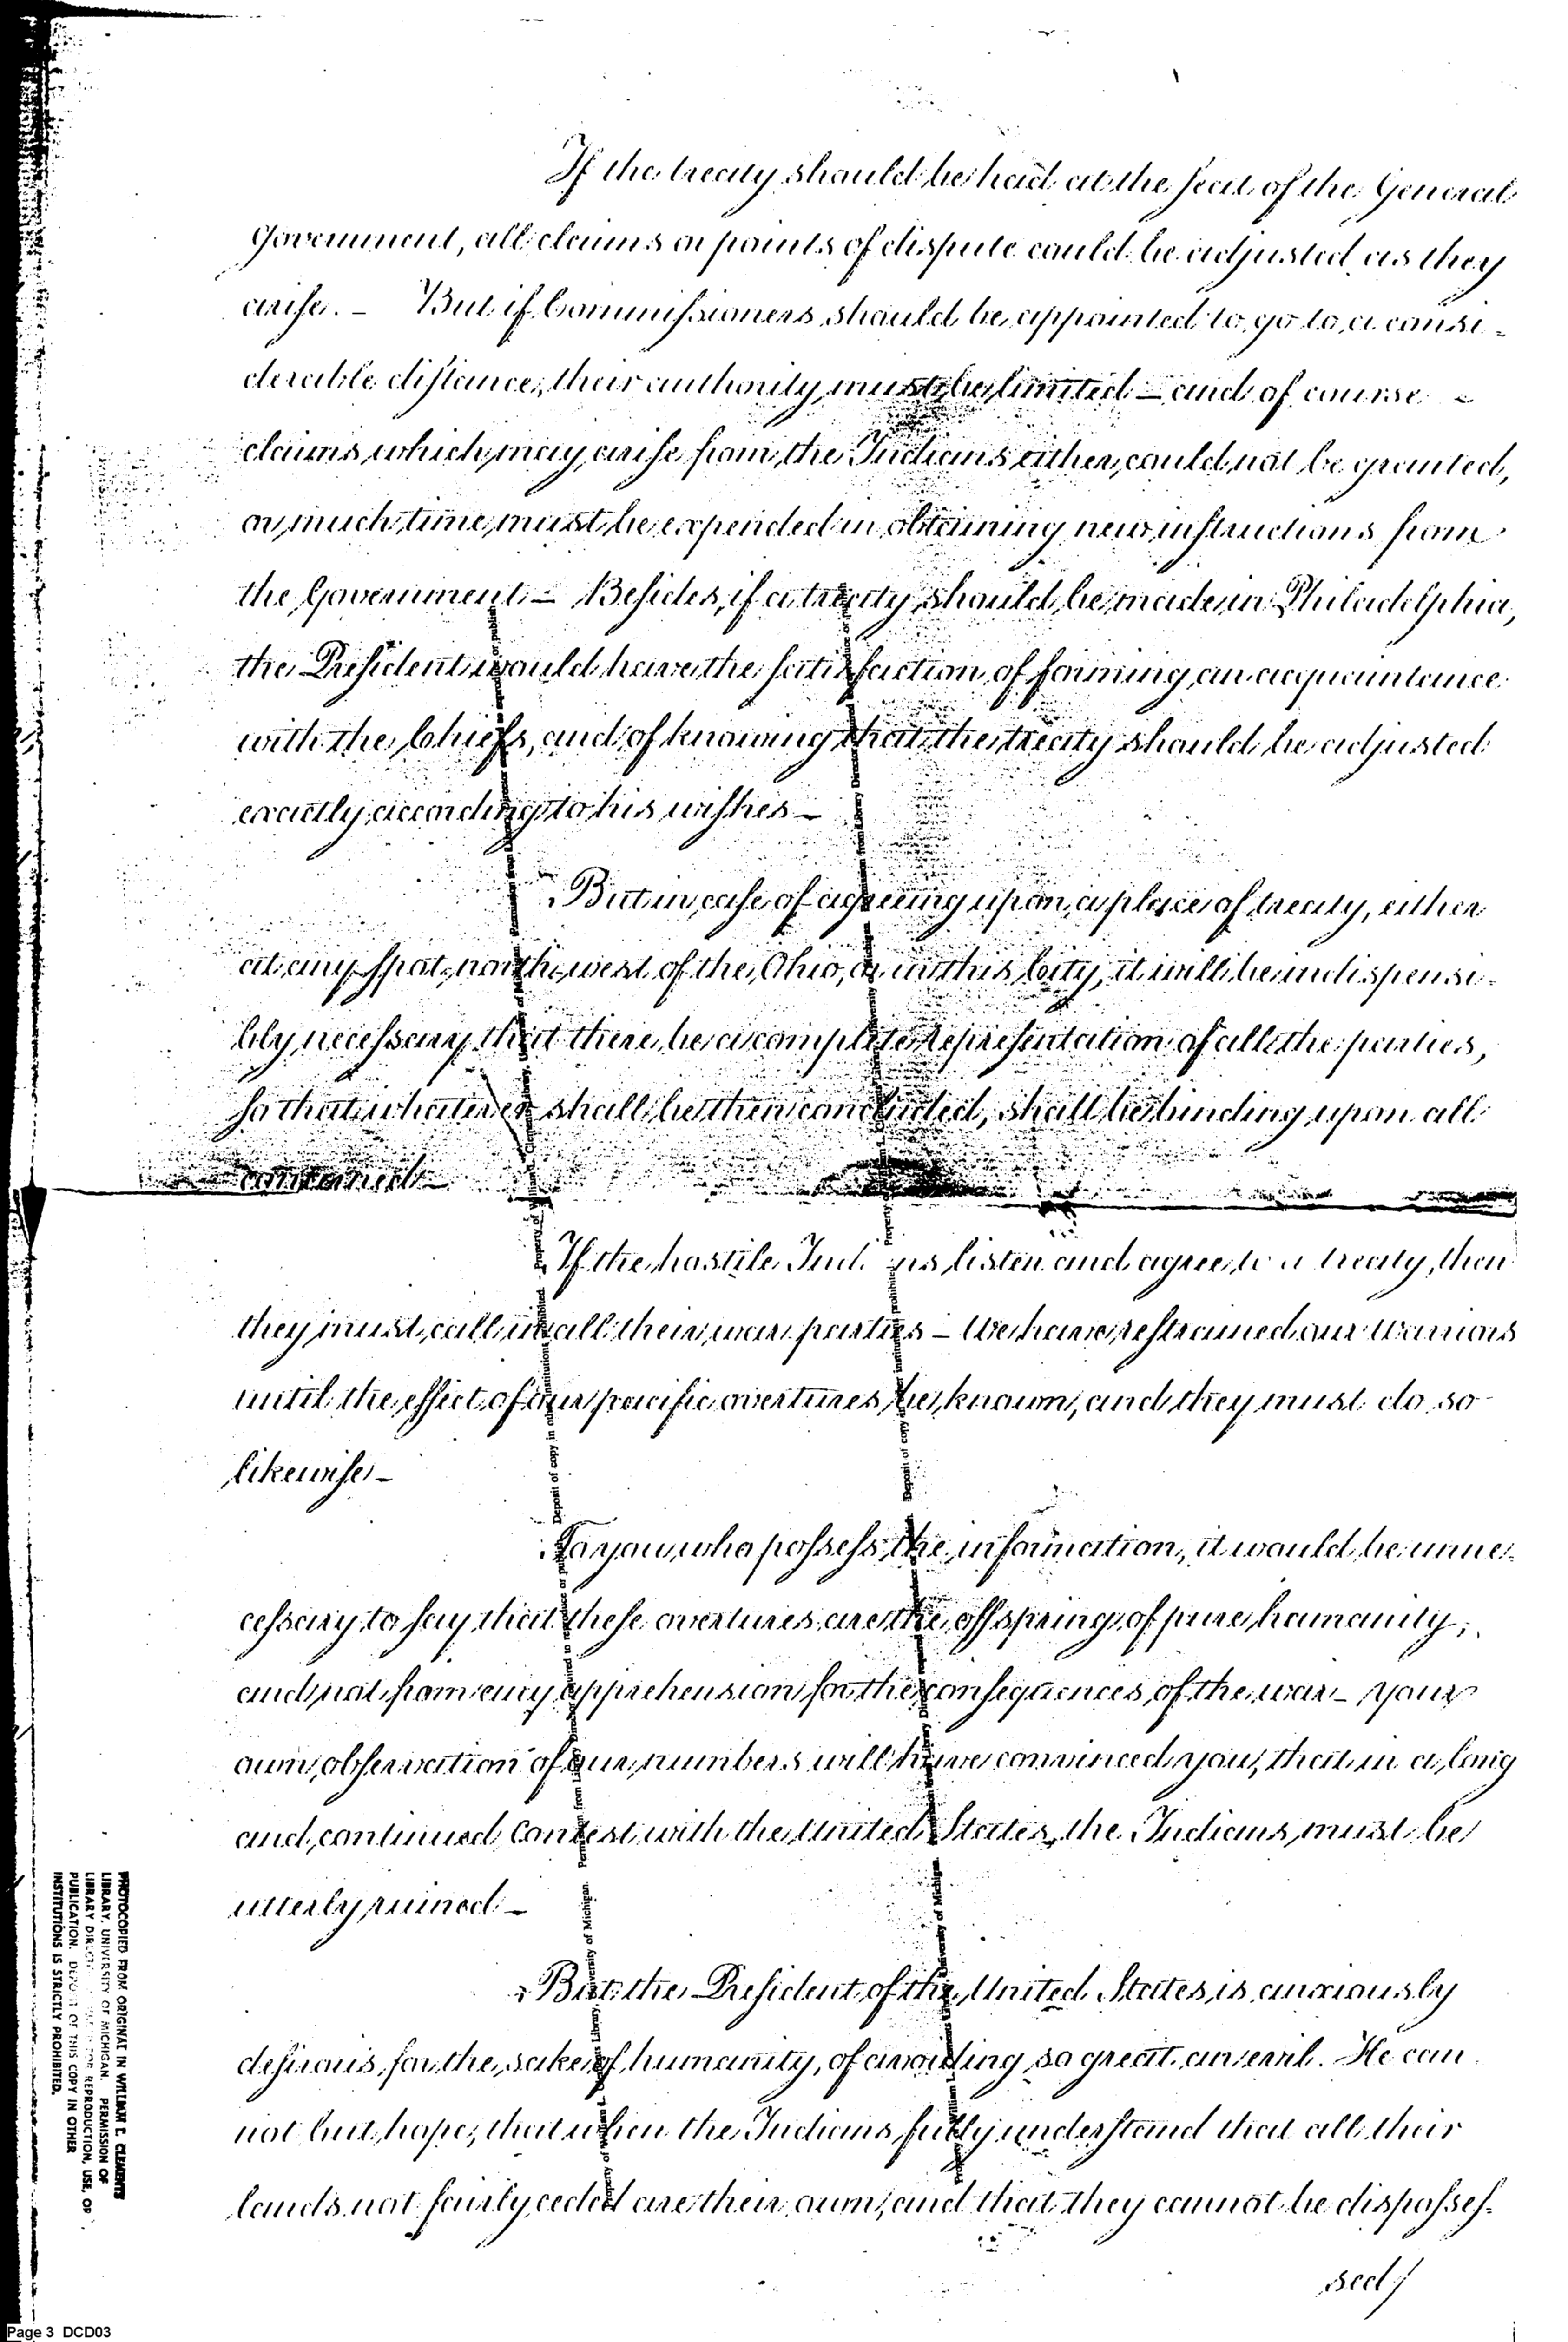 If the treaty should be had at the seat of the General
Government, all claims or points of dispute could be adjusted as they
arise. – But if Commissioners should be appointed to go to a consi-
derable distance, their authority must be limited – and of course –
claims which may arise from the Indians either could not be granted,
or much time must be expended in obtaining new instructions from
the Government – Besides, if a treaty should be made in Philadelphia,
the President would have the satisfaction of forming an acquaintance
with the Chiefs, and of knowing that the treaty should be adjusted
exactly according to his wishes –
But in case of agreeing upon a place of treaty, either
at any spot north west of the Ohio, or in this City, it will be indispensi-
bly necessary that there be a complete representation of all the parties,
so that whatever shall be then concluded, shall be binding upon all
concerned –
If the hostile Ind ns listen and agree to a treaty, then
they must call in all their war parties – We have restrained our Warriors
until the effect of our pacific overtures be known, and they must do so
likewise –
To you, who possess the information, it would be unne-
cessary to say that these overtures are the offspring of pure humanity,
and not from any apprehension for the consequences of the war – your
own observation of our numbers will have convinced you, that in a long
and continued contest with the United States, the Indians must be
utterly ruined –
But the President of the United States is anxiously
desirous, for the sake of humanity, of avoiding so great an evil. He can
not but hope, that when the Indians fully understand that all their
lands not fairly ceded are their own, and that they cannot be disposses-
sed/
PHOTOCOPIED FROM ORIGINAL IN WILLIAM L. CLEMENTS
LIBRARY, UNIVERSITY OF MICHIGAN. PERMISSION OF
LIBRARY DIRECTOR REPRODUCTION, USE, OR
PUBLICATION. DEPOSIT OF THIS COPY IN OTHER
INSTITUTIONS IS STRICTLY PROHIBITED.
Page 3 DCD03